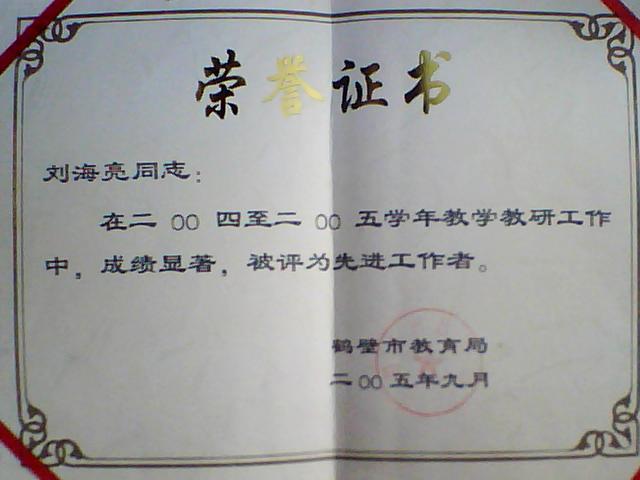 荣誉证书
刘海亮同志：
在二00四至二00五学年教学教研工作
中，成绩显著，被评为先进工作者。
鹤壁市教育局
二00五年九月